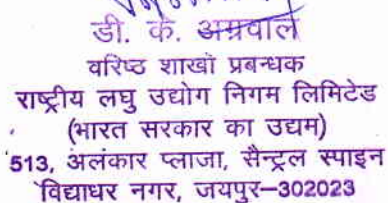 डी. के. अग्रवाल
वरिष्ठ शाखा प्रबन्धक
राष्ट्रीय लघु उद्योग निगम लिमिटेड
(भारत सरकार का उद्यम)
513, अलंकार प्लाजा, सैन्ट्रल स्पाइन
विद्याधर नगर, जयपुर–302023